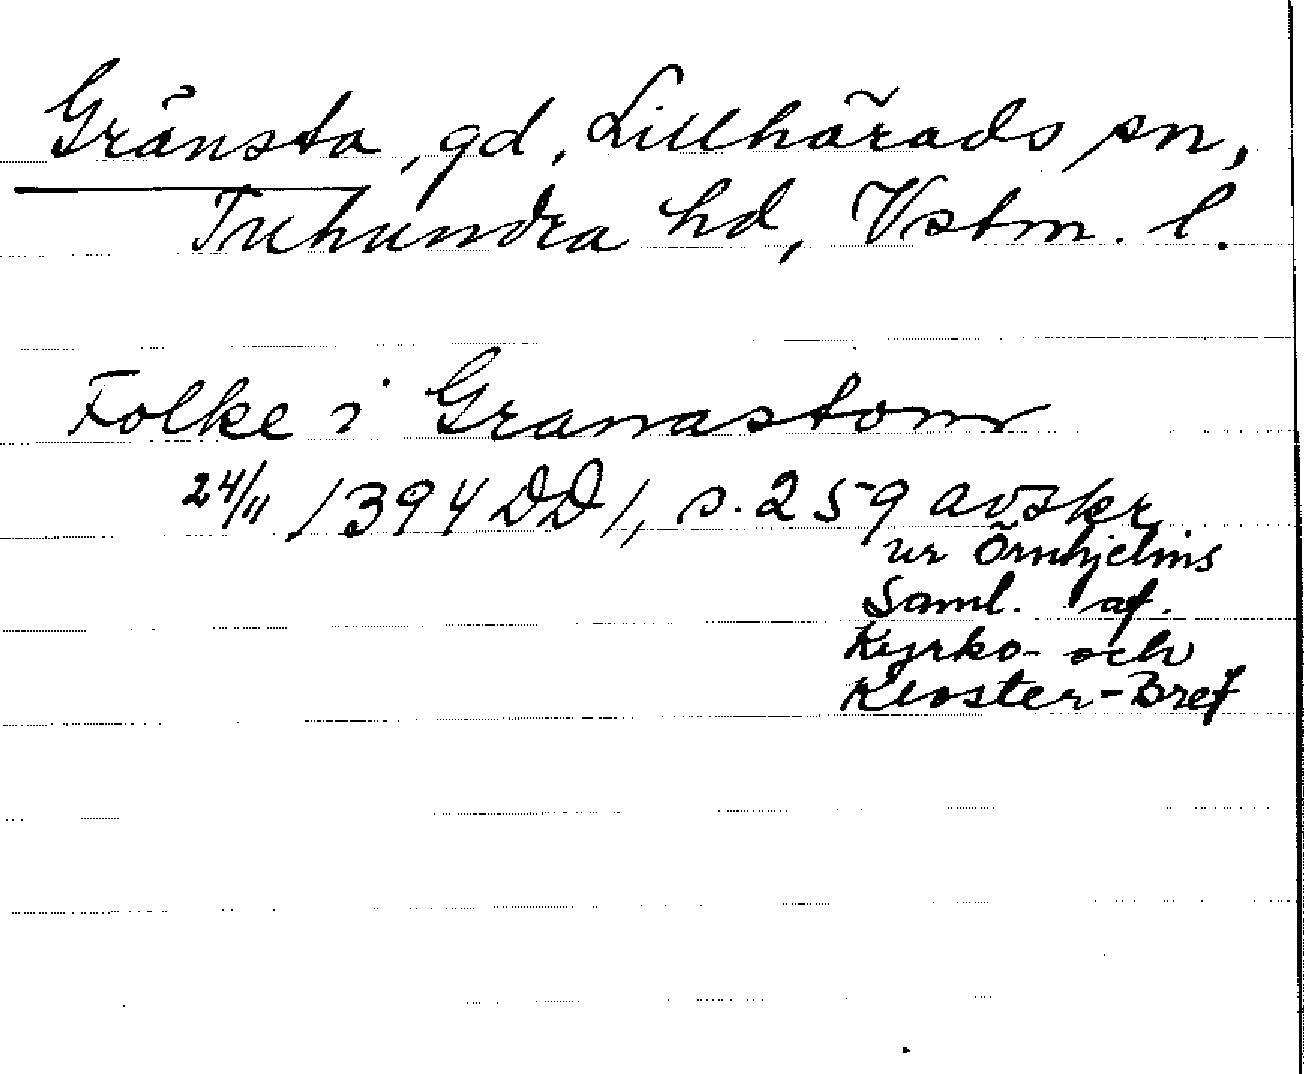 Gränsta, gd, Lillhärads sn,
Tuhundra hd, Vstm. l.
Folke i Granastom
24/11 1394 DD 1, s. 259 avskr
ur Örnhjelms
Saml. af.
Kyrko- och
Kloster-Bref